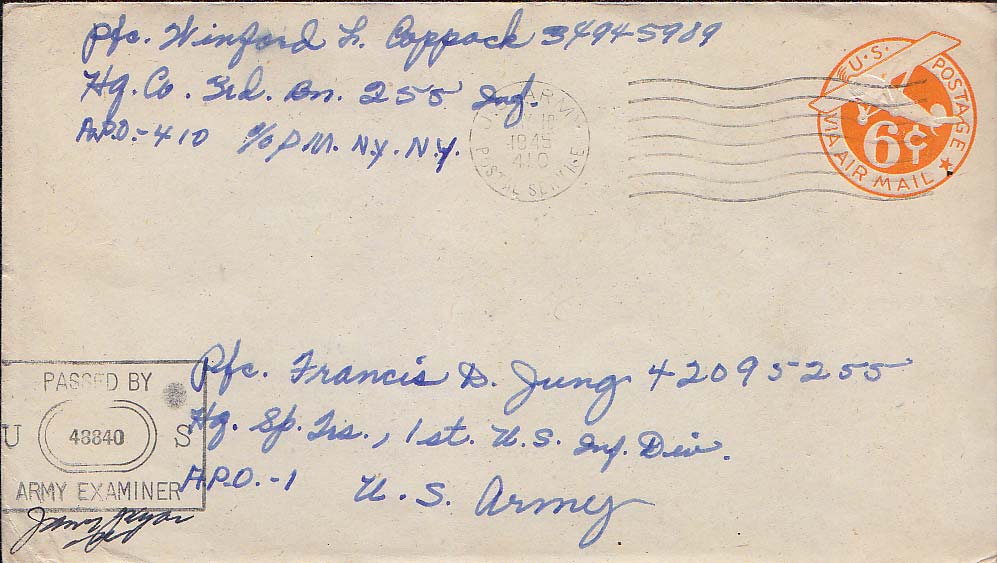 Pfc. Winford L. Coppock 34945989
Hq. Co. 3rd. Bn. 255 Inf.
A.P.O.-410 c/o P.M. N.Y. N.Y.
U.S. ARMY
1945
410
POSTAL SERVICE
U.S. POSTAGE
6¢
VIA AIR MAIL
PASSED BY
U 48840 S
ARMY EXAMINER
Pfc. Francis D. Jung 42095255
Hq. Sp. Trs., 1st. U.S. Inf. Div.
A.P.O.-1 U.S. Army